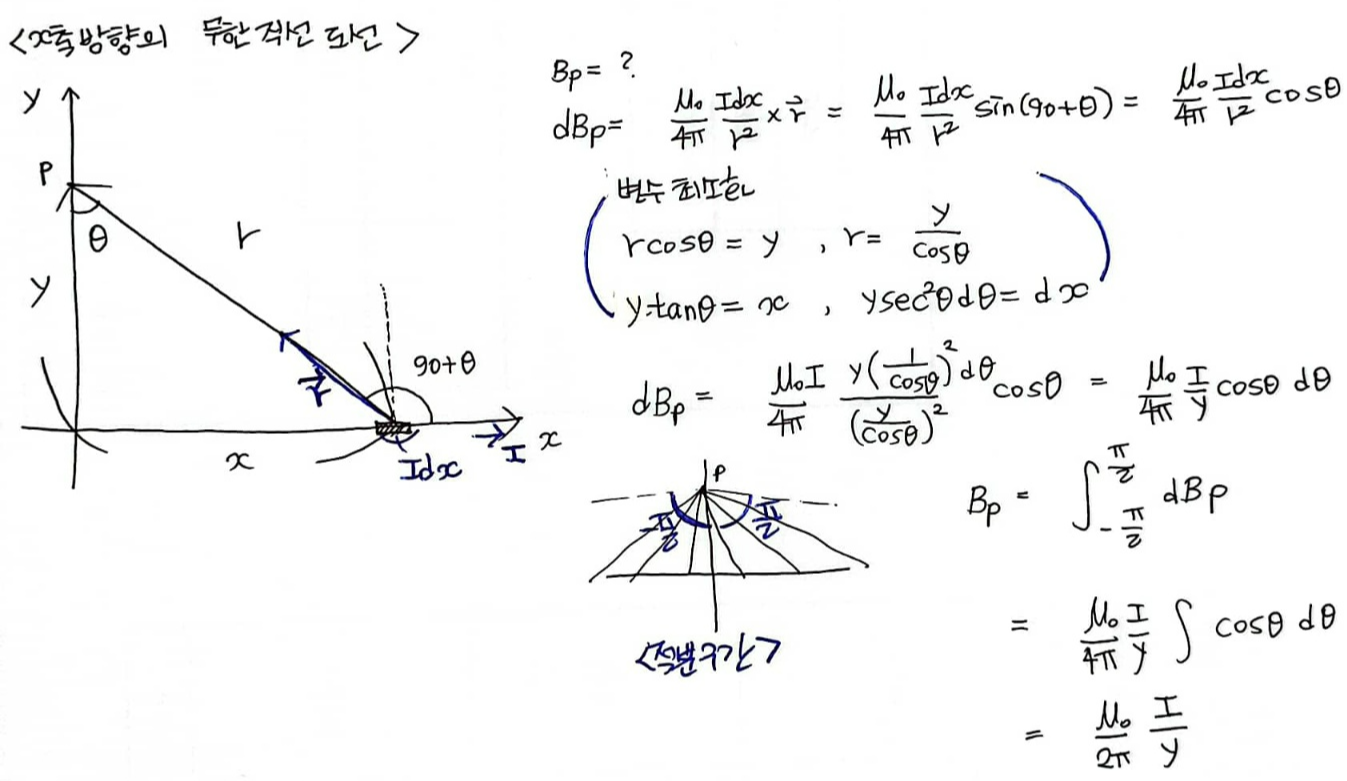 <x축방향의 무한 직선 도선>
y
P
θ
r
y
90+θ
r⃗
x
Idx
I
x
Bp = ?
dBp = μ₀/4π Idx/r² × r⃗ = μ₀/4π Idx/r² sin(90+θ) = μ₀/4π Idx/r² cosθ
변수 최소화
rcosθ = y , r = y/cosθ
y·tanθ = x , ysec²θdθ = dx
dBp = μ₀I/4π y(1/cosθ)²dθ/(y/cosθ)² cosθ = μ₀/4π I/y cosθ dθ
P
-π/2
π/2
<적분구간>
Bp = ∫_{-π/2}^{π/2} dBp
= μ₀/4π I/y ∫ cosθ dθ
= μ₀/2π I/y